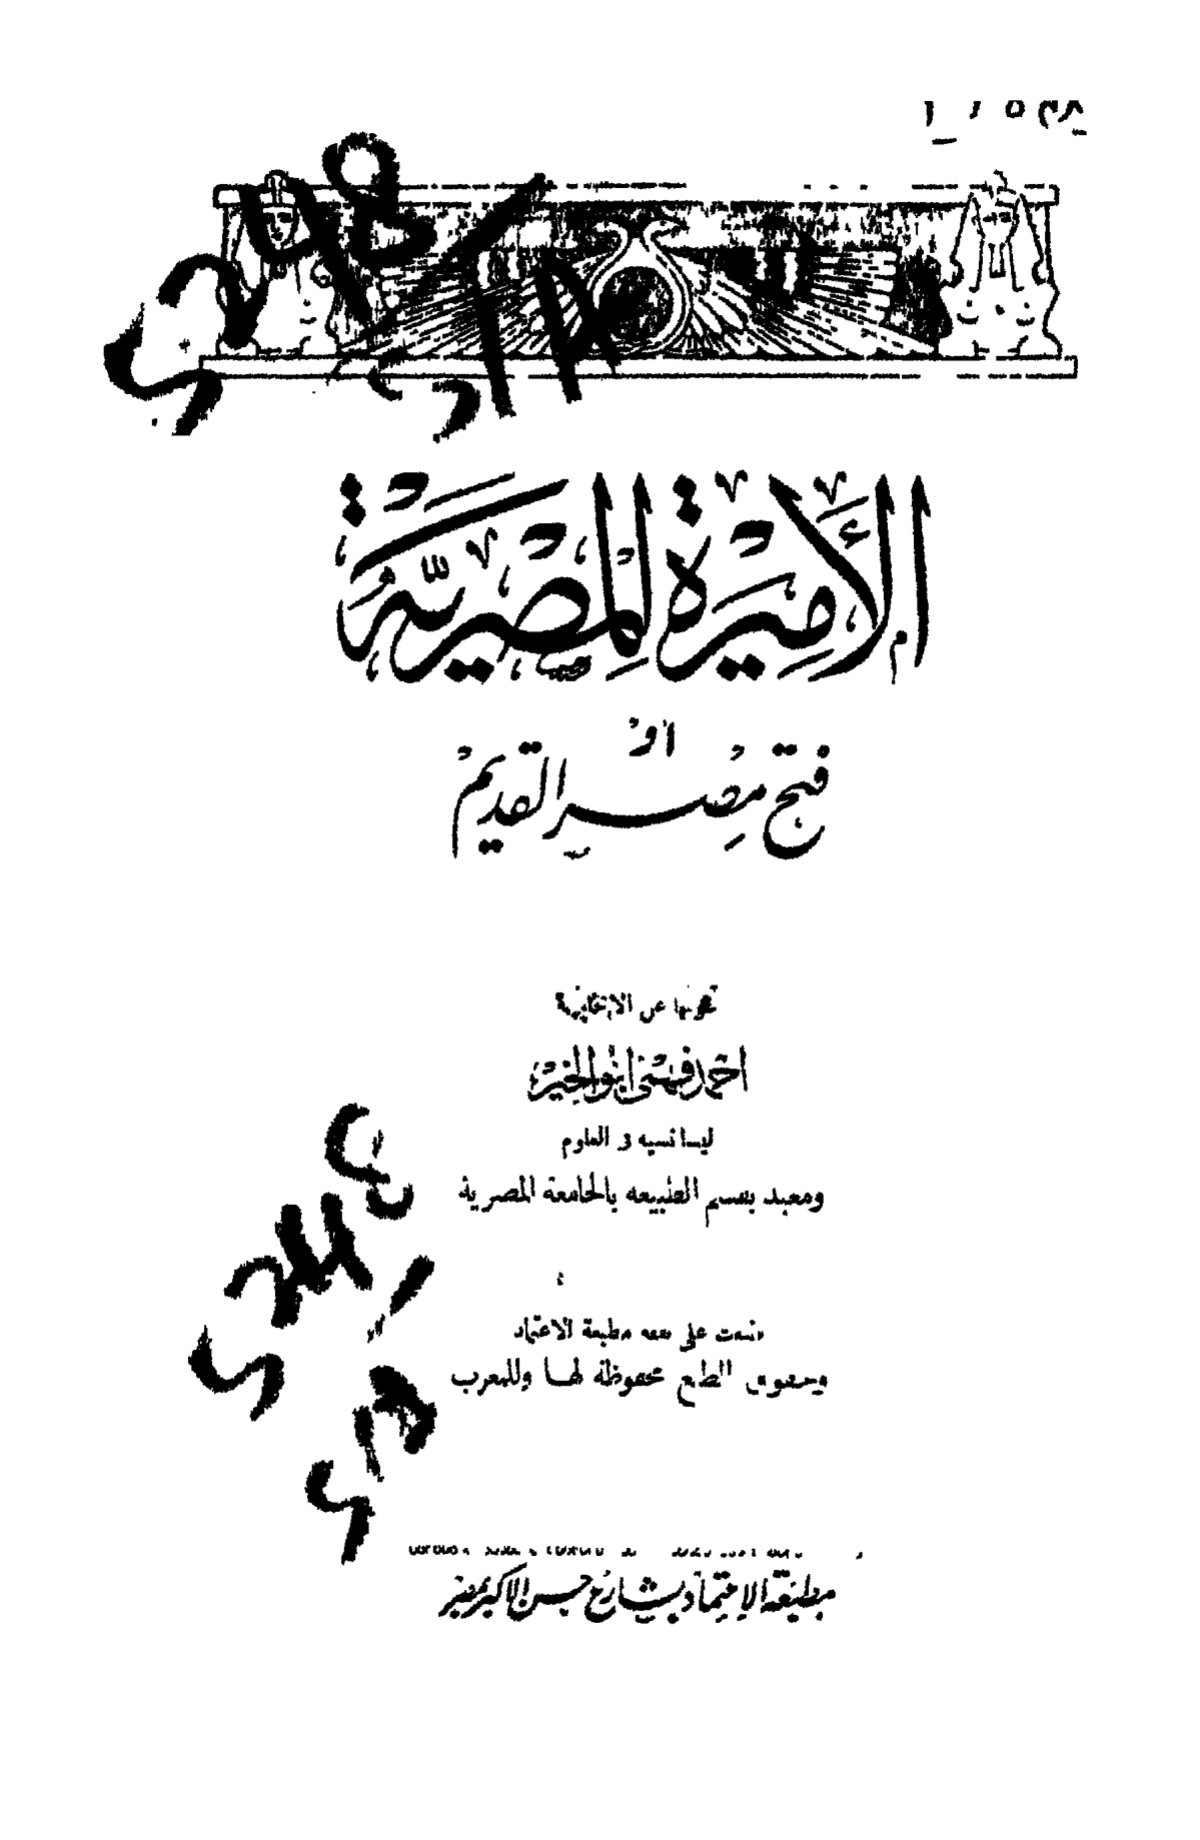 الأميرة المصرية
أو
فتح مصر القديم
عن الإنجليزية
أحمد فهمي أبو الخير
ليسانسيه في العلوم
ومعيد بقسم الطبيعة بالجامعة المصرية
طبعت على نفقة مطبعة الاعتماد
وحقوق الطبع محفوظة لها وللمعرب
مطبعة الاعتماد بشارع حسن الأكبر بمصر